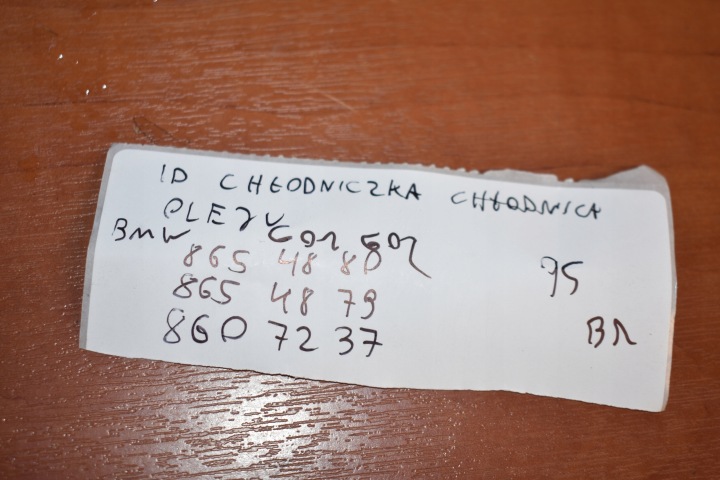 ID CHŁODNICZKA CHŁODNICA
OLEJU
BMW G01 G02
865 48 80
865 48 79
860 72 37
95
BN